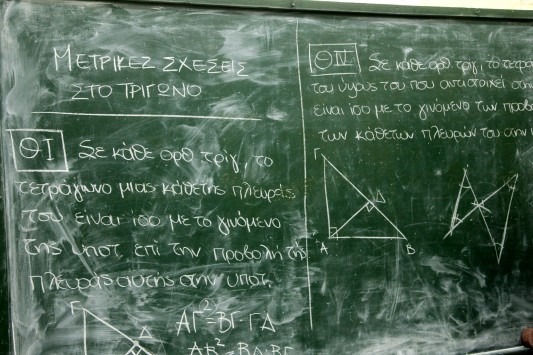 ΜΕΤΡΙΚΕΣ ΣΧΕΣΕΙΣ
ΣΤΟ ΤΡΙΓΩΝΟ
ΘΙ Σε κάθε ορθ τρίγ, το
τετράγωνο μιας κάθετης πλευράς
του είναι ίσο με το γινόμενο
της υποτ. επί την προβολή της
πλευράς αυτής στην υποτ.
Γ
Δ
ΑΓ²=ΒΓ·ΓΔ
ΑΒ²=ΒΔ·ΒΓ
ΘIV Σε κάθε ορθ τρίγ, το τετρά
του ύψους του που αντιστοιχεί στην
είναι ίσο με το γινόμενο των προβο
των κάθετων πλευρών του στην
Γ
Δ
Α Β